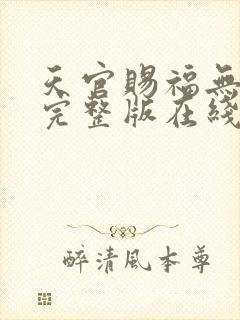 天官賜福無
完整版在綫
醉清風本尊